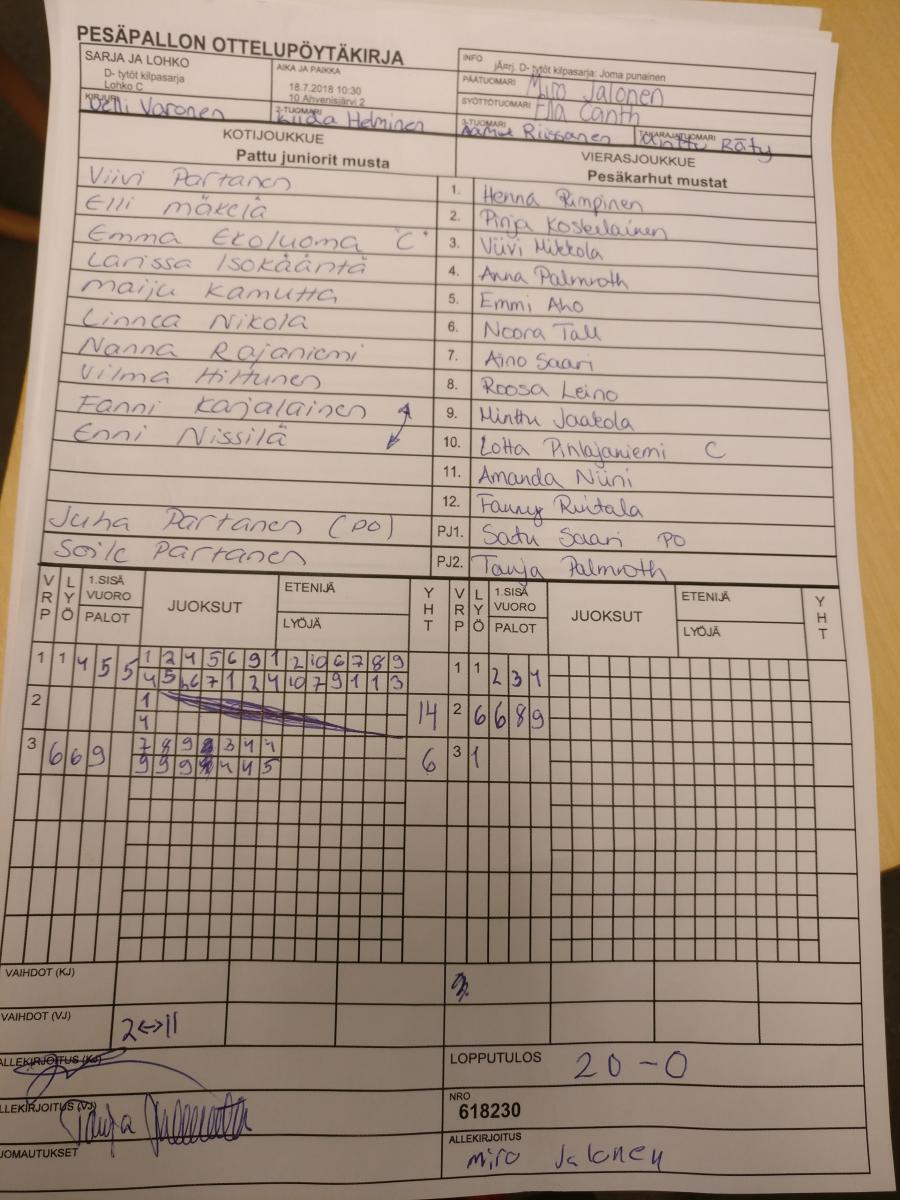 PESÄPALLON OTTELUPÖYTÄKIRJA
SARJA JA LOHKO
D- tytöt kilpasarja
Lohko C
AIKA JA PAIKKA
18.7.2018 10:30
10 Ahvenisjärvi 2
INFO
jÄ¤rj. D- tytöt kilpasarja: Joma punainen
PÄÄTUOMARI Miro Jalonen
SYÖTTÖTUOMARI Ella Canth
KIRJURI Velli Varonen
2-TUOMARI Iida Helminen
3-TUOMARI Riissanen
TAKARAJATUOMARI Anttu Räty
KOTIJOUKKUE
Pattu juniorit musta
VIERASJOUKKUE
Pesäkarhut mustat
Viivi Partanen 1. Henna Rimpinen
Elli mäkelä 2. Pinja Koskelainen
Emma Ekoluoma "C" 3. Viivi Mikkola
Larissa Isokääntä 4. Anna Palmroth
Maiju Kamutta 5. Emmi Aho
Linnea Nikola 6. Noora Tall
Nanna Rajaniemi 7. Aino Saari
Vilma Hiltunen 8. Roosa Leino
Fanni Karjalainen 9. Minttu Jaakola
Enni Nissilä 10. Lotta Pihlajaniemi C
11. Amanda Niini
12. Fanny Riutala
Juha Partanen (PO) PJ1. Satu Saari PO
Soile Partanen PJ2. Tanja Palmroth
VRP LYÖ 1.SISÄ VUORO PALOT JUOKSUT ETENIJÄ LYÖJÄ YHT VRP LYÖ 1.SISÄ VUORO PALOT JUOKSUT ETENIJÄ LYÖJÄ YHT
1 1 4 5 5 1 2 4 5 6 9 1 2 10 6 7 8 9 1 1 2 3 4
4 5 6 7 1 2 4 10 7 9 1 1 3
2 1 14 2 6 6 8 9
4
3 6 6 9 7 8 9 3 4 4 6 3 1
9 9 9 4 4 5
VAIHDOT (KJ)
VAIHDOT (VJ) 2↔11
ALLEKIRJOITUS (KJ)
LOPPUTULOS 20-0
ALLEKIRJOITUS (VJ) Tanja
NRO
618230
ALLEKIRJOITUS
miro Jalonen
HUOMAUTUKSET